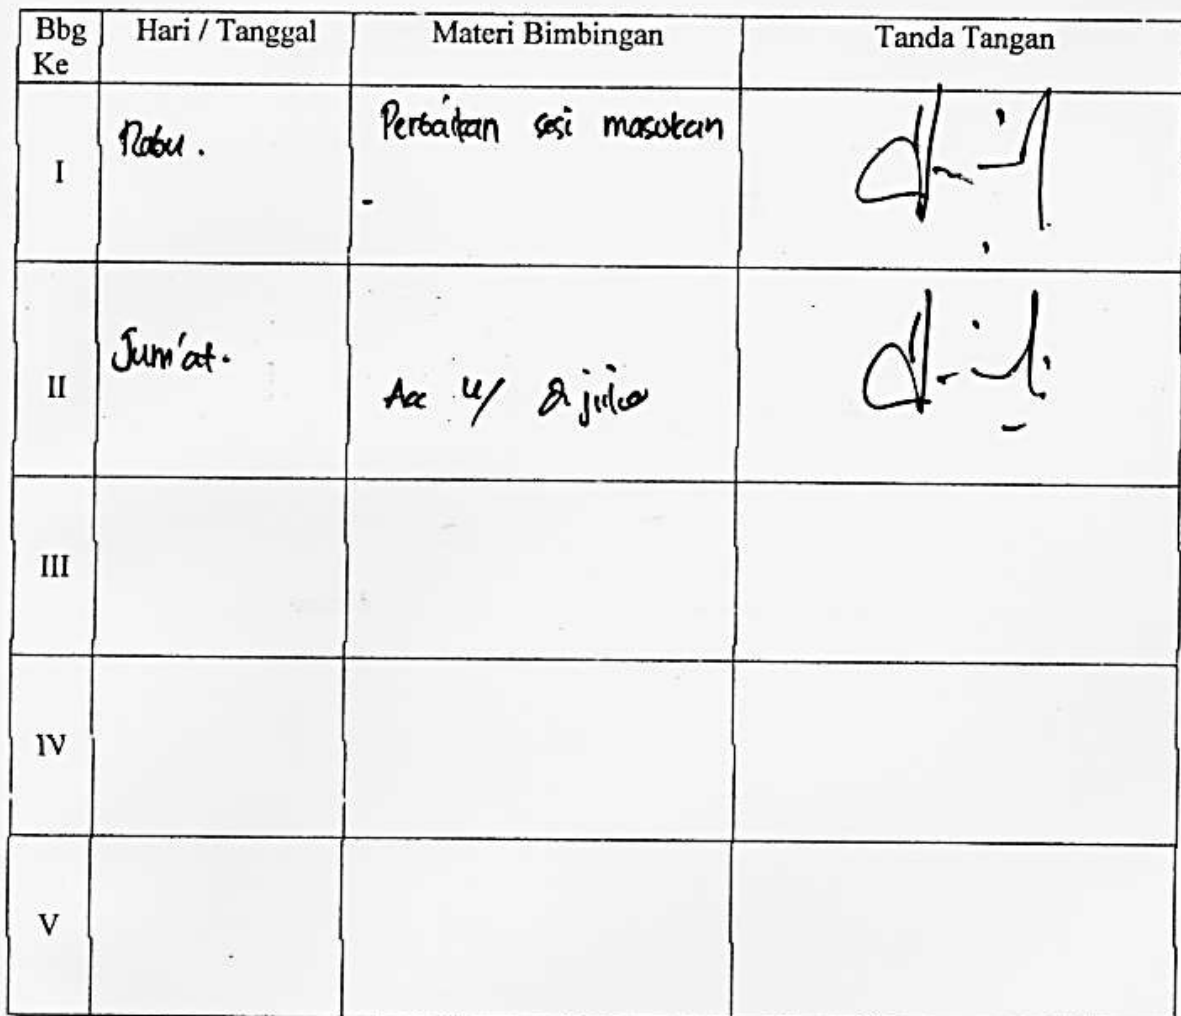 Bbg Ke
Hari / Tanggal
Materi Bimbingan
Tanda Tangan
I
Rabu.
Perbaikan sesi masukan
-
II
Jum'at.
Acc u/ dijilid
III
IV
V